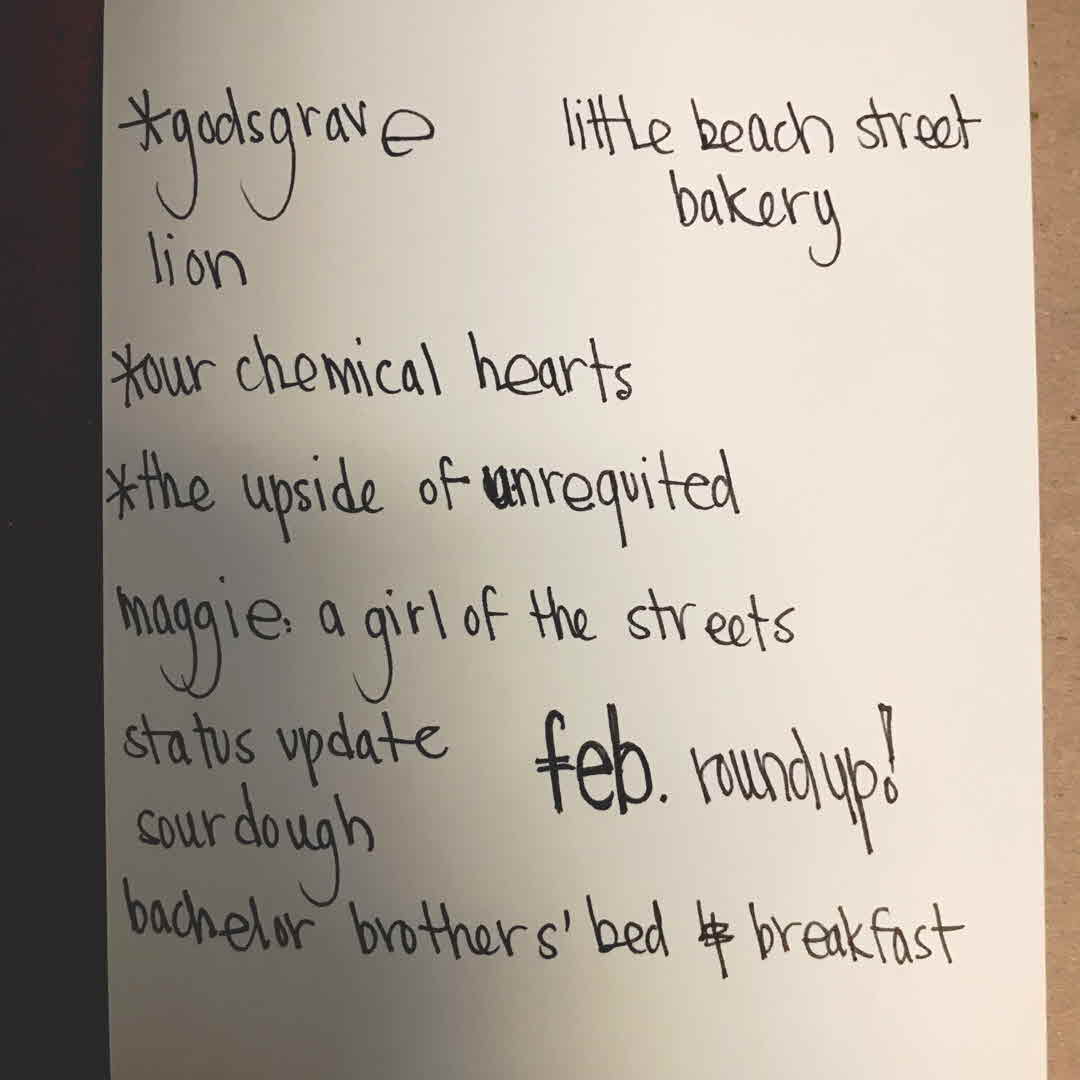 *godsgrave
little beach street
bakery
lion
*our chemical hearts
*the upside of unrequited
maggie: a girl of the streets
status update
feb. roundup!
sourdough
bachelor brothers' bed & breakfast